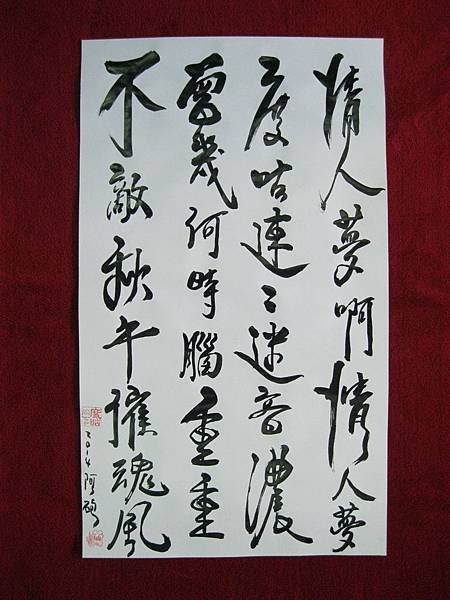 情人夢啊情人夢
度咕連〻迷音濃
曾幾何時腦重重
不敵秋午催魂風
2014 阿